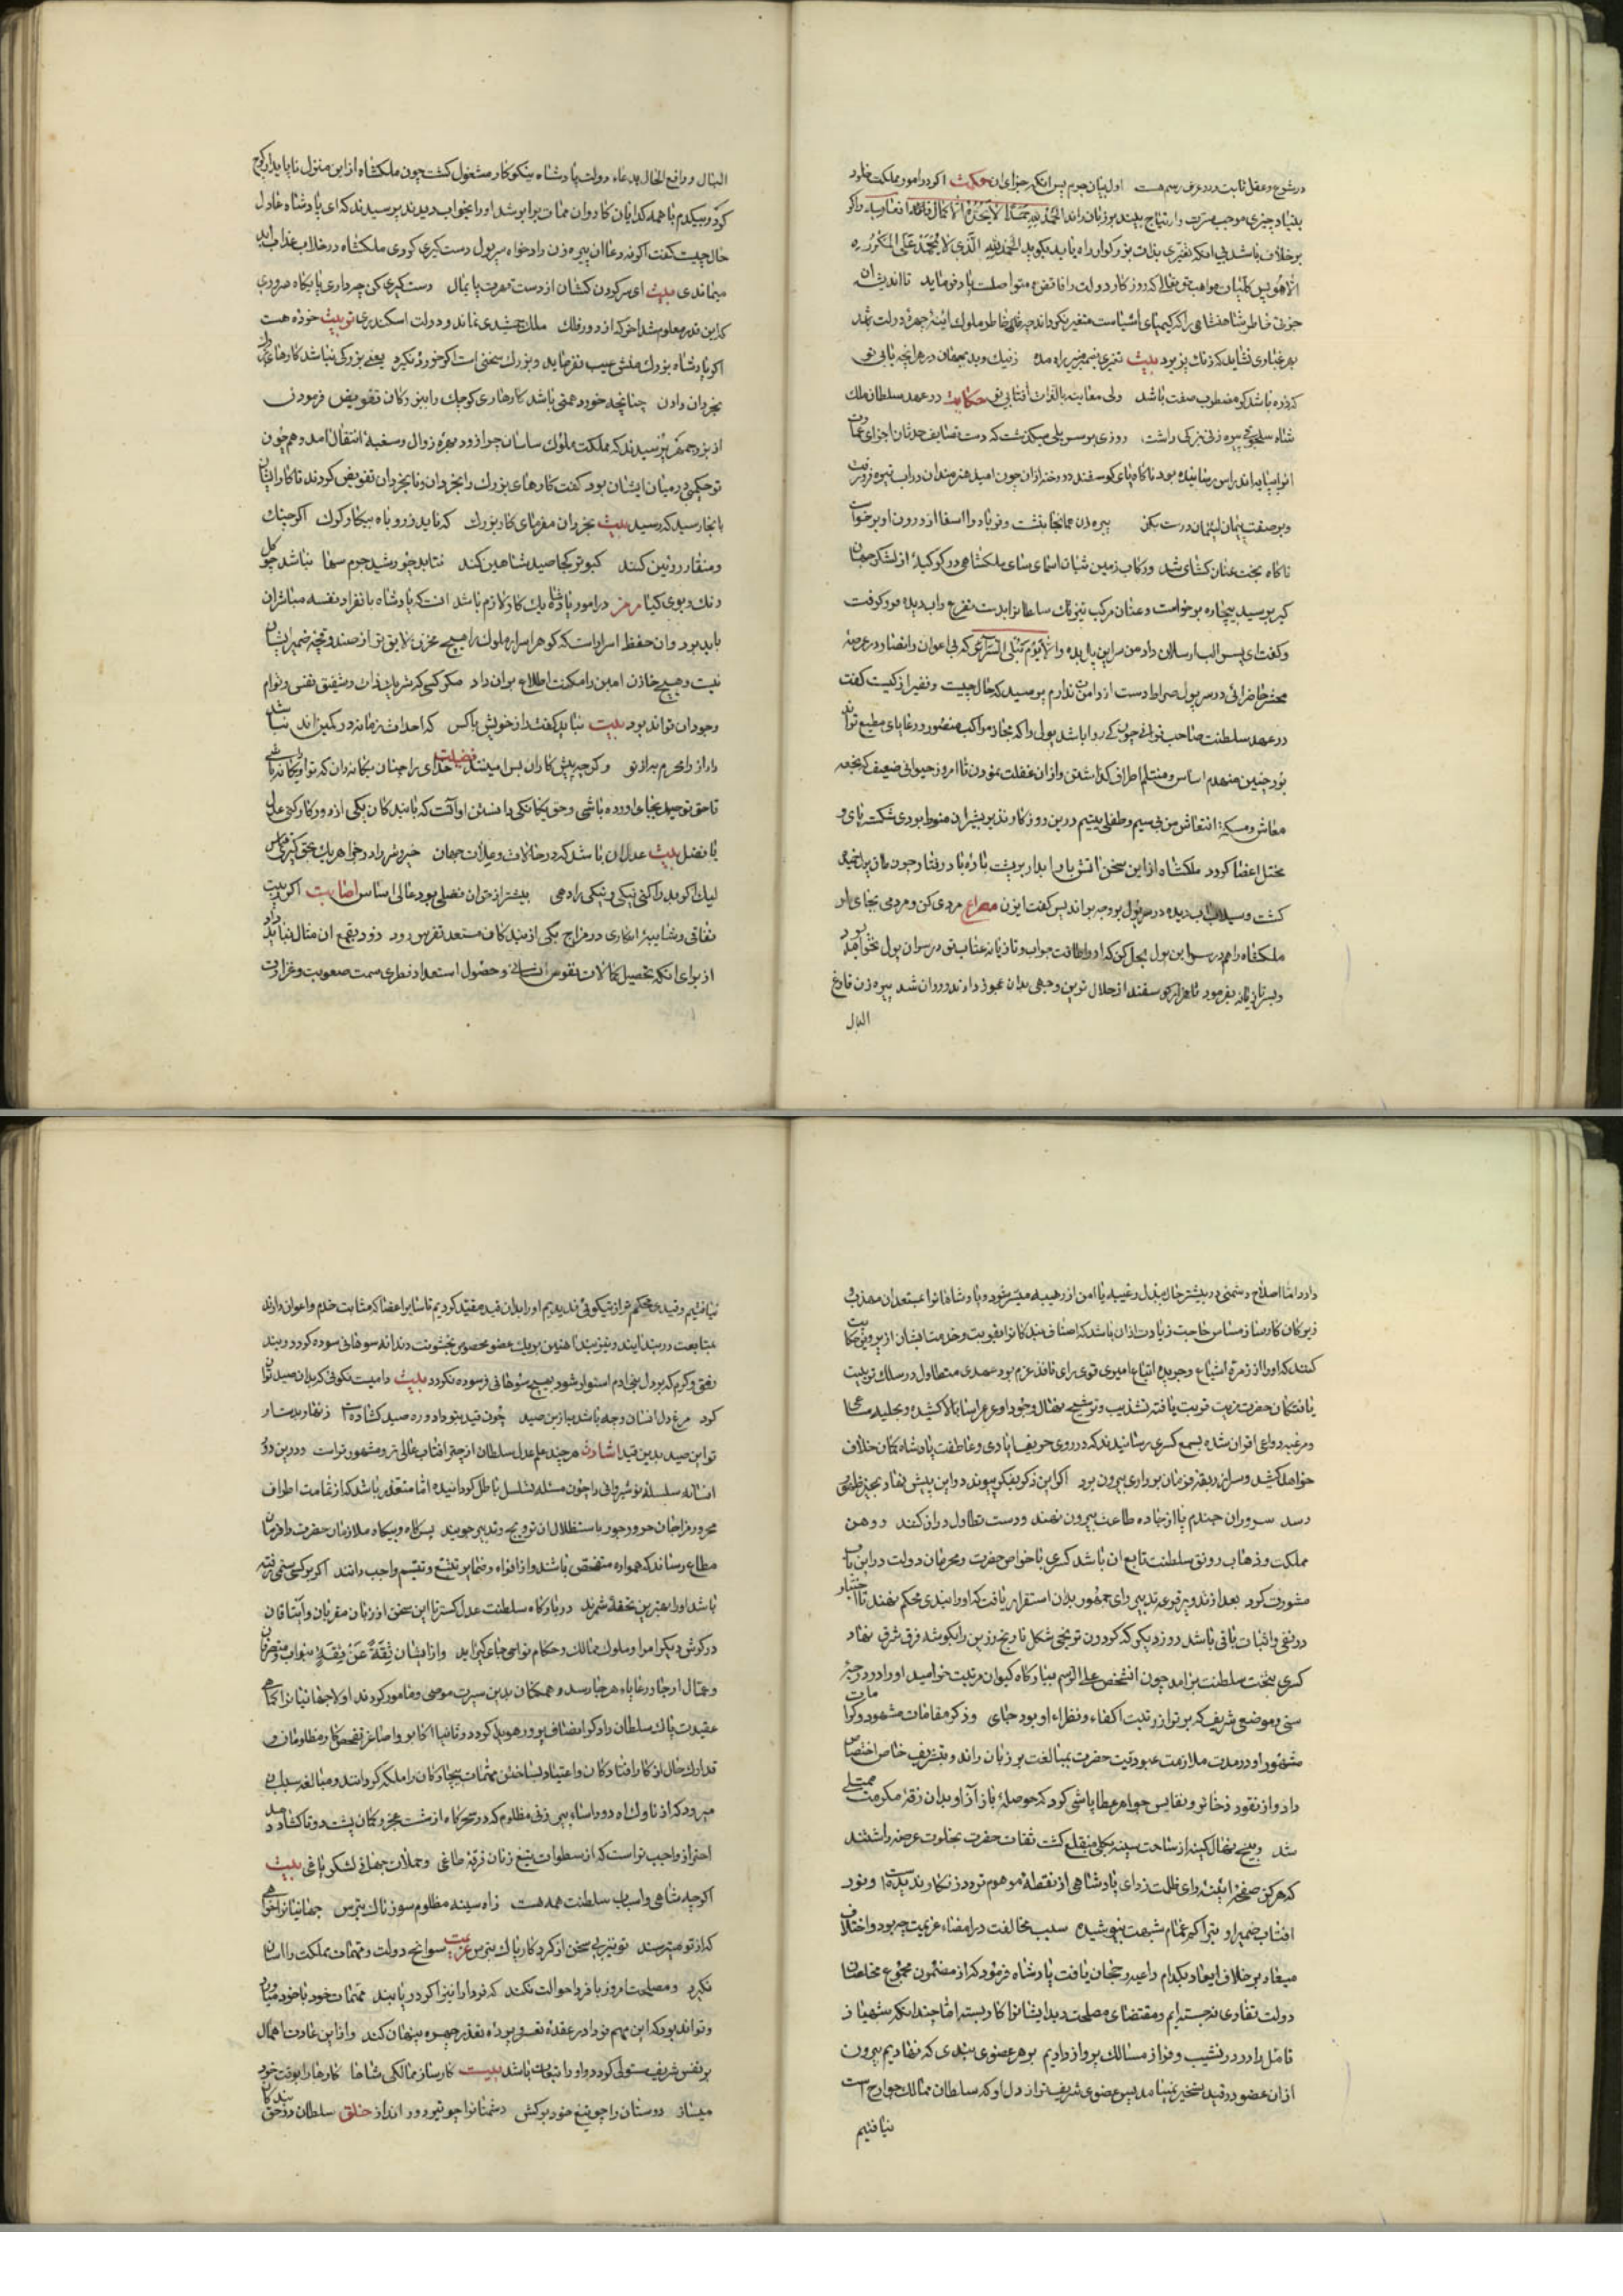 در شرع و عقل ثابت و در عرف رسم هست اول بیان جرم پس انکه جزای ان حکمت اکر در امور مملکت خلود
بر خلاف باشد بی انکه تغیری بذات بزرکوار راه یابد بکوید الحمد لله الذی لا یحمد علی المکروه
جزئی خاطر شاهنشاهی را که کیمیای
بهر غباری نشاید که زنک پزیرد بیت تغیری بضمیر منیر راه مده ز نیک و بد بجهان در هر انچه یابی تو
کدر ده باشد کو مضطرب صفت باشد ولی معاینه بالذات افتابی تو حکایت در عهد سلطان ملک
شاه سلجوقی پیره زنی بزکی داشت روزی بر سر پلی میکذشت که دست
وبر صفت پیمان لئیمان درست بکن پیره زن همانجا بنشت و فریاد وا اسفا از درون او برخواست
ناکاه بخت عنان کشای شد و رکاب زمین شتاب اسمان سای ملکشاهی در کوکبه از لشکر جهان
کیر برسید بیچاره برخواست و عنان مرکب تیزتک سلطان را بدست تضرع و اب دیده فرو کرفت
وکفت ای پسر الب ارسلان داد من سر این پل بده والا یوم تبلی السرائر که بی اعوان و انصار در عرصه
محشر حاضر ائی در سر پول صراط دست از دامنت ندارم پرسید که حال چیست و نفیر از کیست کفت
در عهد سلطنت صاحب قرانی چون کی روا باشد پولی را که مجاز مواکب منصور و رعایای مطیع تواند
بود چنین منهدم اساس و منثلم اطراف کذاشتن و از ان غفلت نمودن تا امروز حیوانی ضعیف که نجعه
معاش و مسکه انتعاش من بی سیم و طفلی یتیم درین روز کار بدو بشیر ان منوط بودی شکسته پای و
مختل اعضا کردد ملکشاه از این سخن اتش بار
کشت و سیلاب اب دیده در سر پول بر وجه براند پس کفت ایزن مصراع مردی کن و مردمی بجای او
ملکشاه را هم در سر این پول بحل کن که او را طاقت جواب و تازیانه عتاب تو در سر ان پول نخواهد بود
وبر تازیانه بفرمود تا هزار کوسفند از حلال ترین وجهی بدان عجوز دادند و روان شد پیره زن فارغ
البال
البال و رافع الحال بدعاء دولت پادشاه نیکوکار مشغول کشت چون ملکشاه از این منزل ناپایدار کوچ
کرد و بیکدم با همه کدایان کاروان ممات برابر شد او را بخواب دیدند پرسیدند که ای پادشاه عادل
حال چیست کفت اکر نه دعا ان پیره زن دادخواه سر پول دست کیری کردی ملکشاه در خلاب عذاب ابد
میماندی بیت ای سر کردن کشان از دست قهرت پایمال دست کیری کن چو داری پایکاه سروری
کاین قدر معلوم شد اخر که از دور فلک ملک جمشیدی نماند و دولت اسکندری تربیت خورده هست
اکر پادشاه بزرک منش عیب نفرماید و بزرک سخنی است اکر خورد نکیرد یعنی بزرکی نباشد کارهای بزرک
بخردان دادن چنانچه خورد همتی باشد کارهای کوچک را ببزرکان تفویض فرمودن
از بزرجمهر پرسیدند که مملکت ملوک ساسان چرا زود بهره زوال و سغبه انتقال امد و هم چون
تو حکیمی در میان ایشان بود کفت کارهای بزرک را بخردان و نابخردان تفویض کردند تا کار ایشان
بانجا رسید که رسید بیت بخردان مفرمای کار بزرک که ناید ز روباه پیکار کرک اکر چنک
ومنقار روئین کنند کبوتر کجا صید شاهین کند نتابد چو رشید جرم سها نباشد چو کل
رنک و بوی کیا رمز در امور پادشاه یک کار لازم باشد انست که پادشاه بانفراد نفسه مباشر ان
باید بود و ان حفظ اسرار است که کوهر اسرار ملوک را هیچ مخزن لایق تر از صندوقچه ضمیر ایشان
نیست و هیچ خازن امین را مکنت اطلاع بر ان نداد مکر کسی که شریک ذات و شفیق نفس و توام
وجود ان تواند بود بیت نباید کفت راز خویش با کس که احداث زمانه در کمین اند نباشد
راز را محرم به از تو و کر چه پیش کاران بس امینند فضیلت خدای را چنان یکانه دان که تو او یکانه باشی
تا حق توحید بجای اورده باشی و حق یکانکی دانستن او انست که با بندکان یکی از دو کار کنی عدل
یا فضل بیت عدل ان باشد که در حالات و علات جهان خیر و شر داد و خواه هر یک بحق کیری قیاس
لیک اکر بد را کنی نیکی و نیکی را دهی بیشتر از حق ان فضلی بود عالی اساس اصابت اکر بیت
نفاقی و شایبه انکاری در مزاج یکی از بندکان مستعد تفرس رود زود بقمع ان مثال نباید داد
از برای انکه تحصیل کمالات نفوس انسانی و حصول استعداد فطری سمت صعوبت و غزارت
دارد اما اصلاح دشمنی در بیشتر حال ببذل رغیبه یا امن از رهیبه میسر شود و پادشاه را بمستعدان مهذب
وزیرکان کارساز مساس حاجت زیادت از ان باشد که اصناف بندکان را بتقویت و خدمت ایشان از پرویز حکایت
کنند که او را از زمره اشیاع و جریده اتباع امیری قوی رای نافذ عزم بود عهدی متطاول در سلک تربیت
یافتکان حضرت
خواهد کشید و سر از ربقه فرمان برداری بیرون برد اکر این ذکر بفکر پیوند
رسد سروران جندم پا از جاده طاعت بیرون نهند و دست تطاول دراز کنند و وهن
مملکت و ذهاب رونق سلطنت تابع ان باشد کسری با خواص حضرت و محرمان دولت در این باب
مشورت کرد بعد از تدویر قرعه تدبیر رای جمهور بدان استقرار یافت که او را بندی محکم نهند تا اختیار
در نفی و اثبات باقی باشد روز دیکر که کردون ترنجی شکل نارنج زرین را بکوشه فرق شرق نهاد
کسری بتخت سلطنت برامد چون انشخص علی الرسم ببارکاه کیوان رتبت خرامید او را در حیز
سنی و موضعی شریف که برتر از رتبت اکفاء و نظراء او بود جای و ذکر مقامات مشهود و کرامات
مشهور او در مدت ملازمت عبودیت حضرت بمبالغت بر زبان راند و بتشریف خاص اختصاص
داد و از نقود ذخائر و نفایس جواهر عطا پاشی کرد که حوصله باز آز او بدان زقه مکرمت ممتلی
شد و بیخ نهال کینه از ساحت سینه بکلی منقلع کشت ثقات حضرت بخلوت عرضه داشتند
که هرکز صفحه ائینه رای ظلمت زدای پادشاهی از نقطه موهوم تردد زنکار ندیده است و نور
افتاب ضمیر او بتراکم غمام شبهت نپوشیده سبب مخالفت در امضاء عزیمت چه بود و اختلاف
میعاد بر خلاف ایعاد بکدام داعیه رجحان یافت پادشاه فرمود که از مضمون مجموع مخلصان
دولت تفادی نجسته ایم و مقتضای مصلحت دید ایشانرا کار بسته اما چندانکه شهباز
تامل را در نشیب و فراز مسالک پرواز دادیم بر هر عضوی بندی که نهادیم بیرون
از ان عضو در قید تسخیر نمیامد پس عضوی شریف تر از دل او که سلطان ممالک جوارح است
نیافتیم
نیافتیم و قیدی محکم تر از نیکوئی ندیدیم او را بدان قید مقید کردیم تا سایر اعضا که مثابت خدم و اعوان دارند
بمتابعت در بند ایند و نیز بند اهنین بر یک عضو مخصوص بخشونت دندانه سوهانی سوده کردد و بند
رفق و کرم که بر دل بنی ادم استوار شود بهیچ سوهانی فرسوده نکردد بیت دامیست نکوئی که بدان صید توان
کرد مرغ دل انسان و چه باشد به ازین صید چون قید بتو داد و ره صید کشاده است زنهار بدست ار
تو این صید بدین قید اشارت هر چند علم عدل سلطان از چتر افتاب عالی تر و مشهورتر است و درین دور
افسانه سلسله نوشیروانی را چون مسئله تسلسل باطل کردانیده اما متعذر باشد که از تمامت اطراف
مطاع رساند که همواره متفحص باشند و از افواه و ضمایر تتبع و تقسم واجب دانند اکر بر کسی ستمی رفته
باشد او را بهترین تحفه شمرند در بارکاه سلطنت عدل کستر تا این سخن از زبان مقربان و ایناقان
در کوش دیکر امرا و ملوک ممالک و حکام نواحی جای کیر اید و از ایشان ثقة عن ثقة بنواب و متصرفان
وعمال ارجا و رعایاء هر جا رسد و همکان بدین سیرت موصی و مامور کردند اولا جهانیانرا کمال
عقیدت پاک سلطان دادکر انصاف پرور هویدا کردد و ثانیا اکابر و اصاغر تفحص کار مظلومان و
تدارک حال از کار افتادکان و اعتیاد بساختن مهمات بیچارکان را ملکه کردانند و مبالغه سبب
میرود که از ناوک اه دوداساء پیر زنی مظلوم که در سحرکاه از شست عجز و کمان پشت دو تا کشاد دهد
احتراز واجب تر است که از سطوات تیغ زنان فرقه طاغی و حملات جهاة لشکر باغی بیت
اکر چه شاهی و اسباب سلطنت همه هست ز اه سینه مظلوم سوزناک بترس جهانیان را خواهی
که از تو میترسند تو نیز بی سخن از کردکار پاک بترس عزیمت سوانح دولت و مهمات مملکت را اسان
نکیرد و مصلحت امروز با فردا حوالت نکند که فردا را نیز اکر دریابند مهمات خود با خود میارد
وتواند بود که این مهم فردا در عقده تعسر بود
بر نفس شریف مستولی کردد و او را بیت کارساز ممالکی شاها کارها را بوقت خود
میساز دوستان را چو تیغ خود برکش دشمنانرا چو تیر دور انداز خلق سلطان در حق بندکان